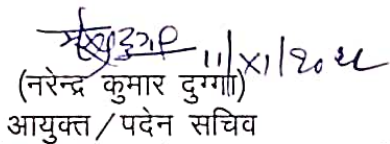 11/XI/20
(नरेन्द्र कुमार दुग्गा)
आयुक्त / पदेन सचिव